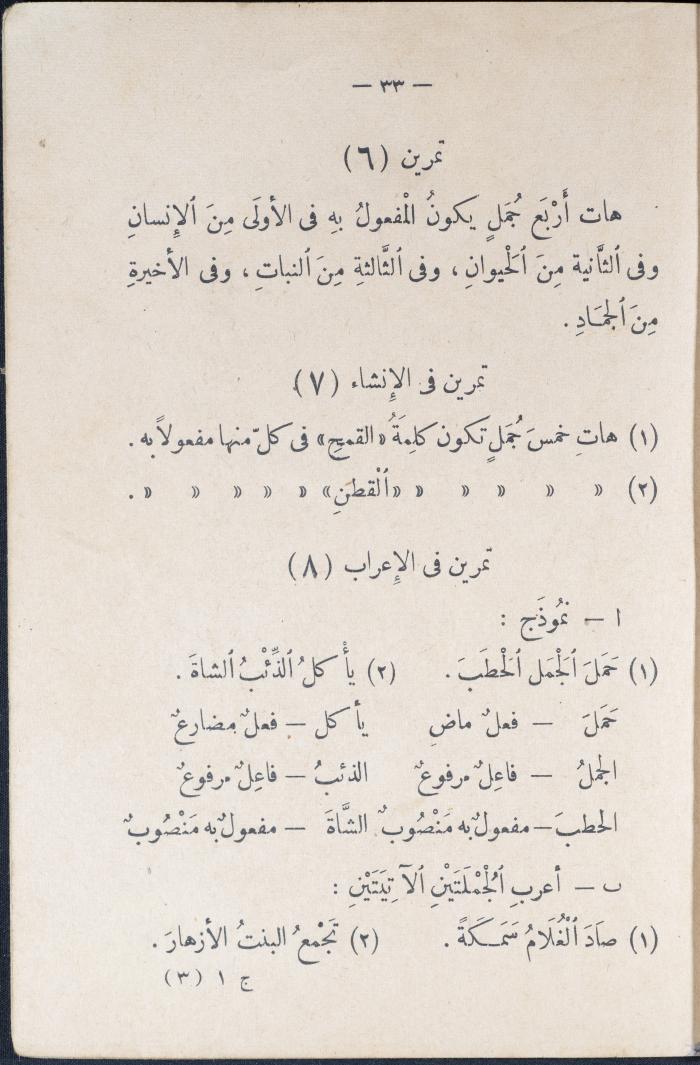 — ٣٣ —
تمرين (٦)
هات أَرْبَع جُمَلٍ يكونُ المْفعولُ بِهِ فى الأولَى مِنَ ٱلإِنسانِ
وفى ٱلثَّانية مِنَ ٱلَحْيوانِ ، وفى ٱلثَّالثةِ مِنَ ٱلنباتِ ، وفى الأخيرةِ
مِنَ ٱلجمَادِ .
تمرين فى الإِنشاء (٧)
(١) هاتِ خمسَ جُمَلٍ تكون كلِمَةُ «القمحِ» فى كلّ منها مفعولاً به .
(٢) » » » » » «ٱلْقطنِ» » » » » » .
تمرين فى الإِعراب (٨)
ا — نمُوذَج :
(١) حَمَلَ ٱلَجْمَل ٱلَحْطَبَ . (٢) يأْكلُ ٱلذِّئْبُ ٱلشاةَ .
حَمَلَ — فعلٌ ماضِ يأكل — فعلٌ مضارعٌ
الجملُ — فاعِلٌ مرفوعٌ الذئبُ — فاعِلٌ مرفوعٌ
الحطبَ — مفعولٌ به مَنْصُوبٌ الشَّاةَ — مفعولٌ به مَنْصُوبٌ
ٮ — أعربِ ٱلُجْمْلَتَيْنِ ٱلآتِيَتَيْنِ :
(١) صاَدَ ٱلْغُلَامُ سَمَـكَةً . (٢) تَجْمعُ البنتُ الأزهارَ .
ج ١ (٣)